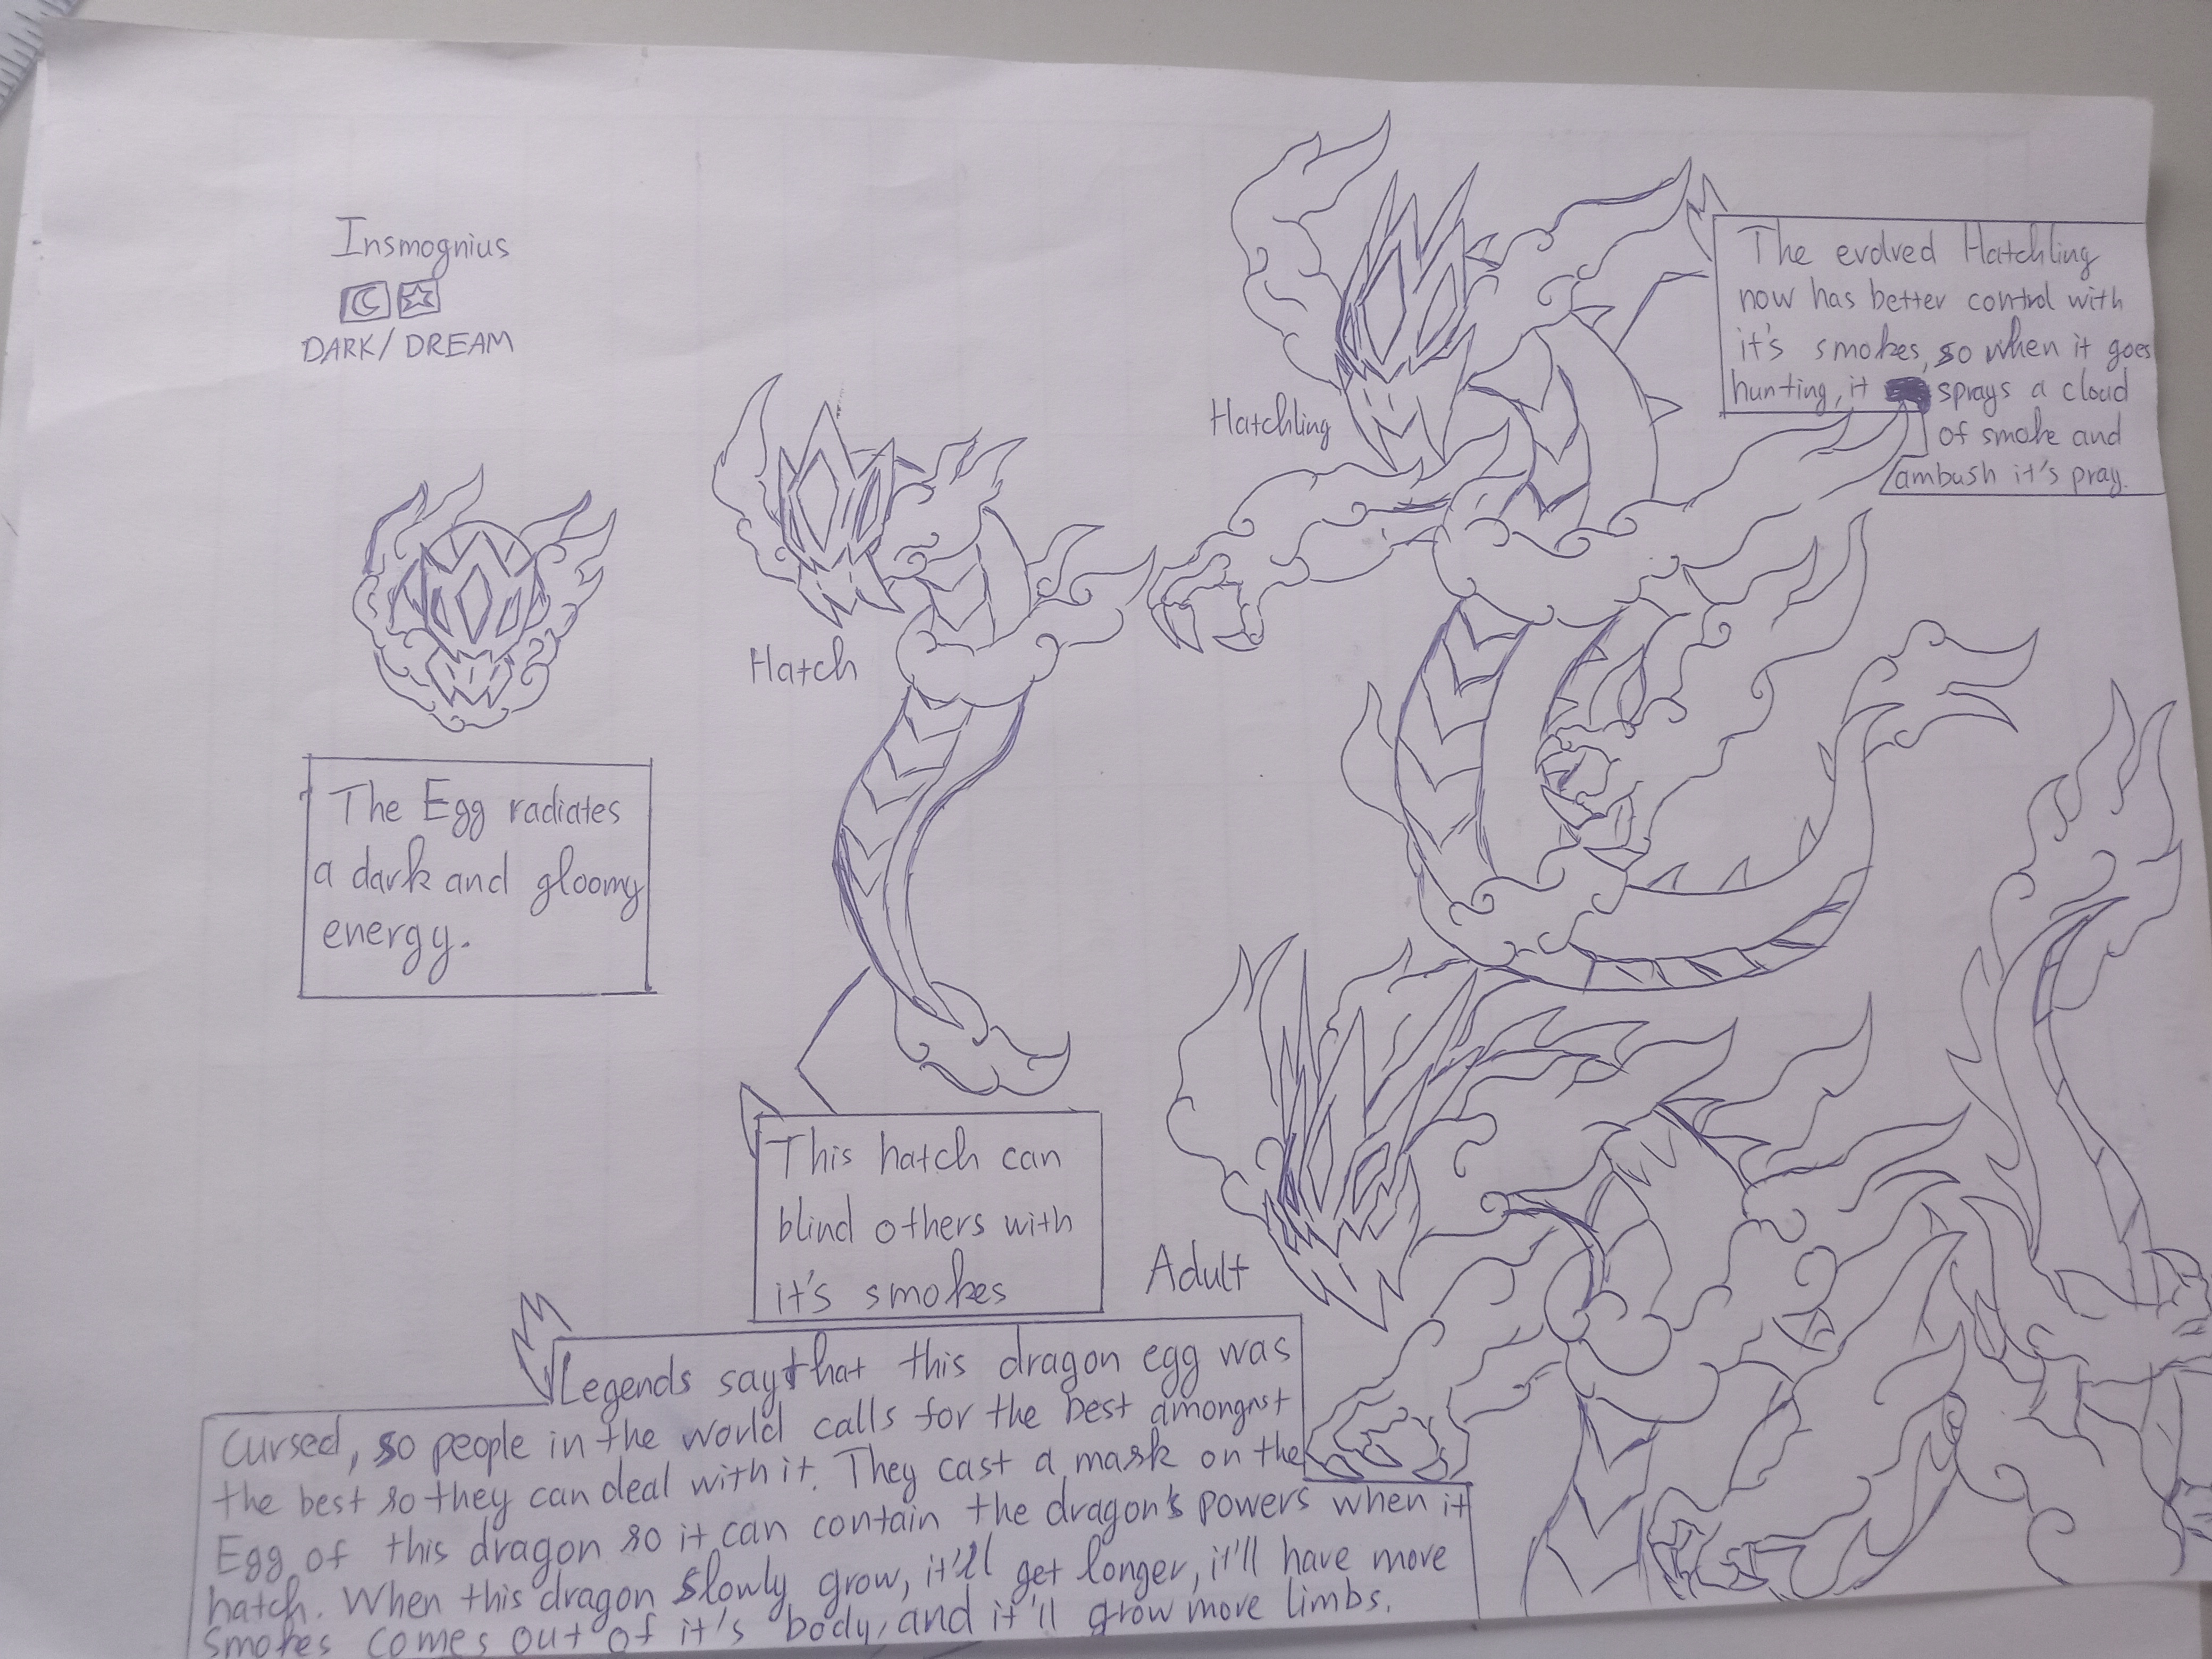 Insmognius
DARK/ DREAM
The Egg radiates
a dark and gloomy
energy.
Hatch
This hatch can
blind others with
it's smokes
Hatchling
The evolved Hatchling
now has better control with
it's smokes, so when it goes
hunting, it sprays a cloud
of smoke and
ambush it's pray.
Adult
Legends say that this dragon egg was
Cursed, so people in the world calls for the best amongnst
the best so they can deal with it. They cast a mask on the
Egg of this dragon so it can contain the dragon's powers when it
hatch. When this dragon slowly grow, it'll get longer, it'll have more
smokes comes out of it's body, and it'll grow more limbs.